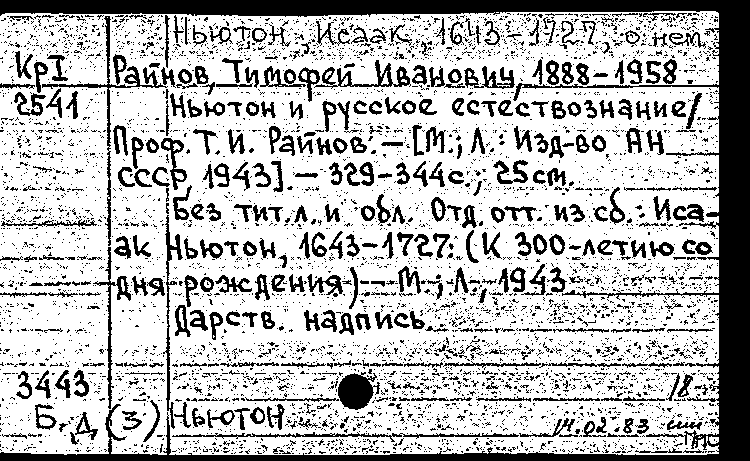 Ньютон, Исаак, 1643-1727, о нем
КрI
Райнов, Тимофей Иванович, 1888-1958.
2541
Ньютон и русское естествознание/
Проф. Т. И. Райнов. - [М.; Л.: Изд-во АН
СССР, 1943]. - 329-344с.; 25см.
Без тит. л. и обл. Отд. отт. из сб.: Иса-
ак Ньютон, 1643-1727: (К 300-летию со
дня рождения) - М.; Л., 1943.
Дарств. надпись.
3443
18
Б. Д (3) Ньютон
14.02.83